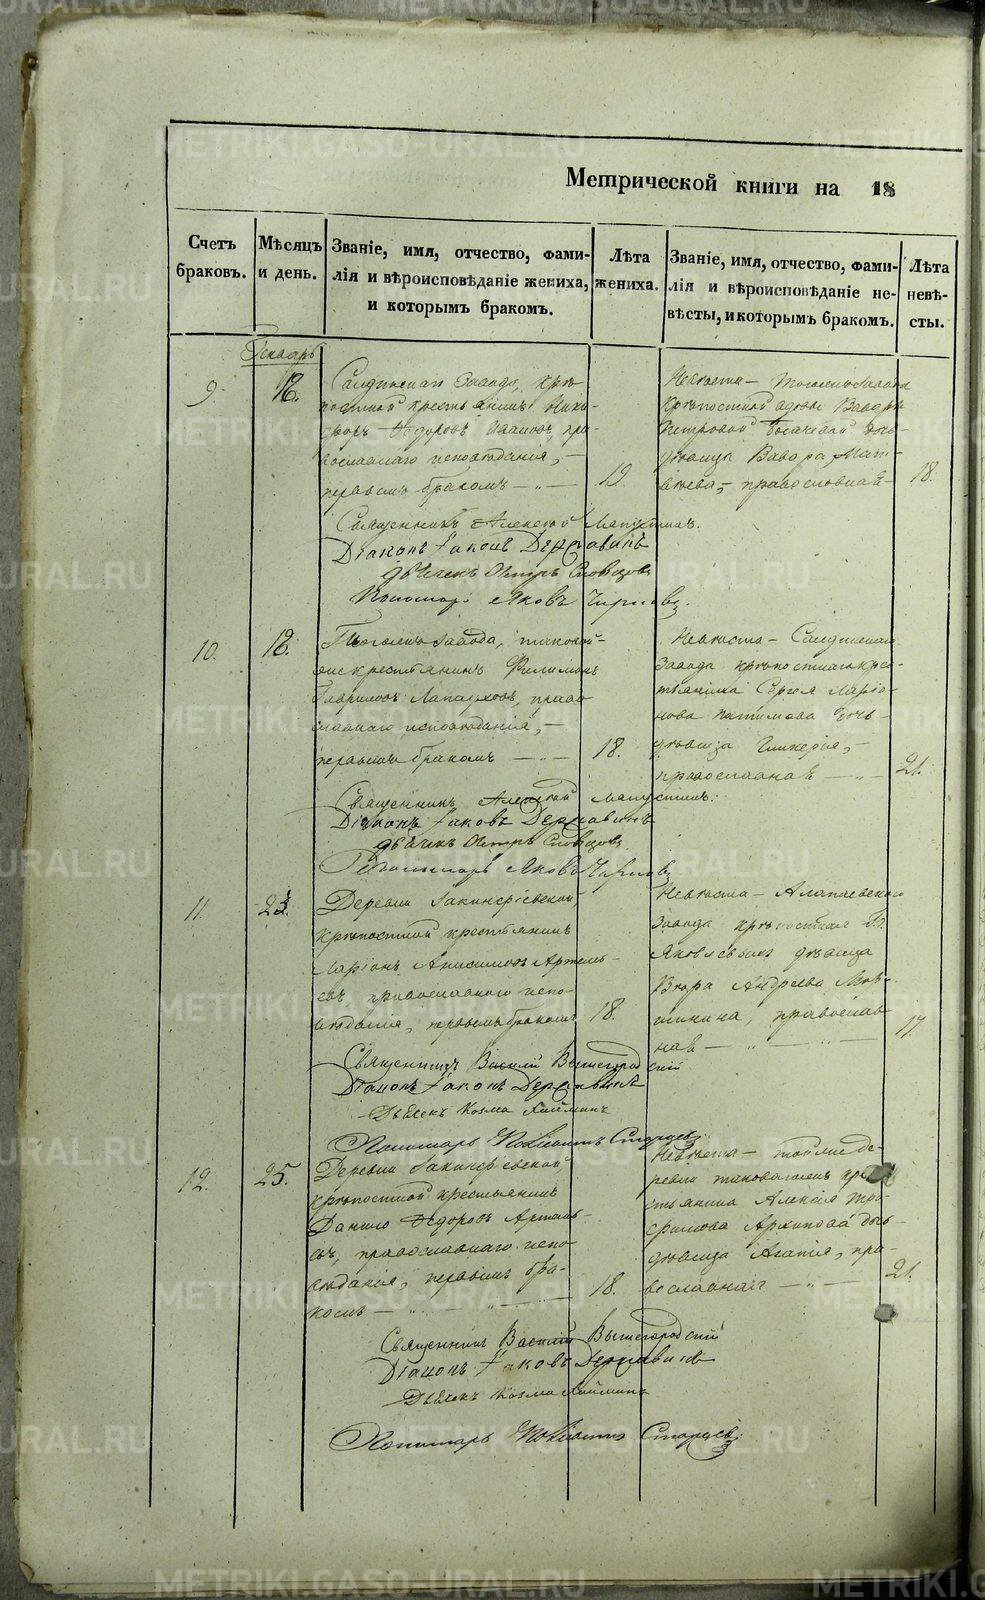 METRIKI.GASO-URAL.RU
Метрической книги на 18
Счетъ браковъ.
Мѣсяцъ и день.
Званіе, имя, отчество, фами-
лія и вѣроисповѣданіе жениха,
и которымъ бракомъ.
Лѣта жениха.
Званіе, имя, отчество, фами-
лія и вѣроисповѣданіе не-
вѣсты, и которымъ бракомъ.
Лѣта невѣ-
сты.
Генварь
9.
Салдинскаго завода, крѣ-
постной крестьянинъ Ники-
форъ Ѳедоровъ пра-
вославнаго исповѣданія,
первымъ бракомъ
19.
Невѣста – тогоже завода
крѣпостной вдовы Варвары
Петровой дочь
дѣвица Варвара Мат-
вѣева, – православная
18.
Священникъ Алексѣй
Діаконъ Іаковъ Державинъ
дьячекъ Петръ Словцовъ
Пономарь Яковъ
10.
18.
Тогоже завода,
крестьянинъ Филимонъ
Гавриловъ право-
славнаго исповѣданія,
первымъ бракомъ
18.
Невѣста – Салдинскаго
завода крѣпостнаго кресть-
янина Сергея Ларіо-
нова дочь
дѣвица Гликерія,
православная
21.
Священникъ Алексѣй
Діаконъ Іаковъ Державинъ
дьячекъ Петръ Словцовъ
Пономарь Яковъ
11.
Деревни Іакинфіевской,
крѣпостной крестьянинъ
Ларіонъ Анисимовъ Артемь-
евъ, православнаго испо-
вѣданія, первымъ бракомъ
18.
Невѣста – Алапаевскаго
завода крѣпостная
Яковлевыхъ дѣвица
Андреева
православ-
ная
17
Священникъ Василій Вышегородскій
Діаконъ Іаковъ Державинъ
Дьячекъ Козма
Пономарь Старцевъ
12.
25.
Деревни Іакинфіевской
крѣпостной крестьянинъ
Данило Ѳедоровъ Артемь-
евъ, православнаго испо-
вѣданія, первымъ бра-
комъ
18.
Невѣста – тойже де-
ревни таковагоже кре-
стьянина Алексія Тро-
фимова Архипова дочь
дѣвица Агапія, пра-
вославная
21.
Священникъ Василій Вышегородскій
Діаконъ Іаковъ Державинъ
Дьячекъ Козма
Пономарь Старцевъ